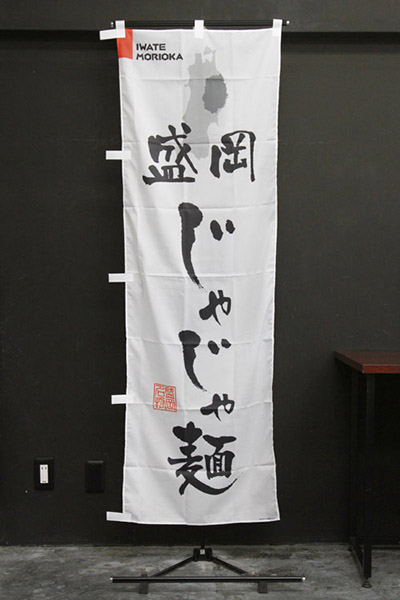 IWATE
MORIOKA
盛岡
じゃじゃ麺